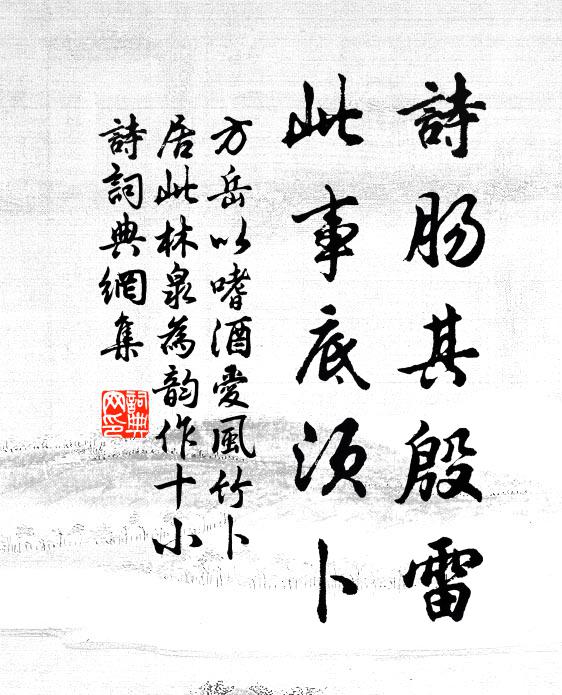 詩腸其殷雷
此事底須卜
方岳以嗜酒愛風竹卜
居此林泉為韵作十小
詩詞典網集
詞典
网印